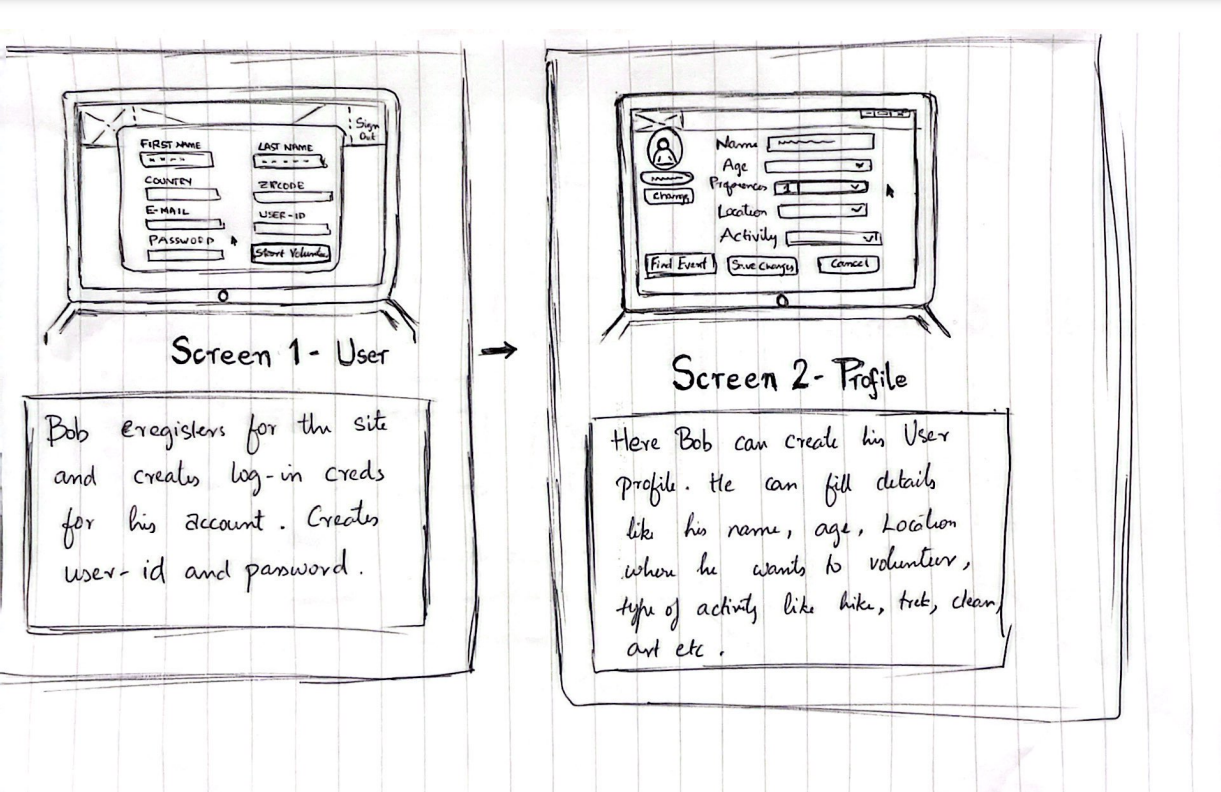 Sign
Out
FIRST NAME
LAST NAME
COUNTRY
ZIPCODE
E-MAIL
USER-ID
PASSWORD
Start
Screen 1 - User
Bob eregisters for the site
and creates log-in creds
for his account. Creates
user-id and password.
Name
Age
Preferences 1
Location
Activity
Change
Find Event
Save Changes
Cancel
Screen 2 - Profile
Here Bob can create his User
profile. He can fill details
like his name, age, Location
where he wants to volunteer,
type of activity like hike, trek, clean,
art etc.